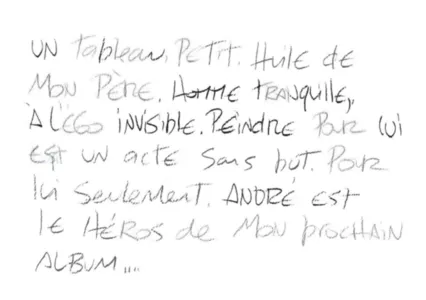 UN tableau, PETIT. HUILE DE
MON PÈRE. HOMME TRANQUILLE,
À L'ÉGO INVISIBLE. PEINDRE POUR LUI
EST UN ACTE SANS BUT. POUR
lui SEULEMENT. ANDRÉ EST
lE HÉROS de MON prOCHAIN
ALBUM....